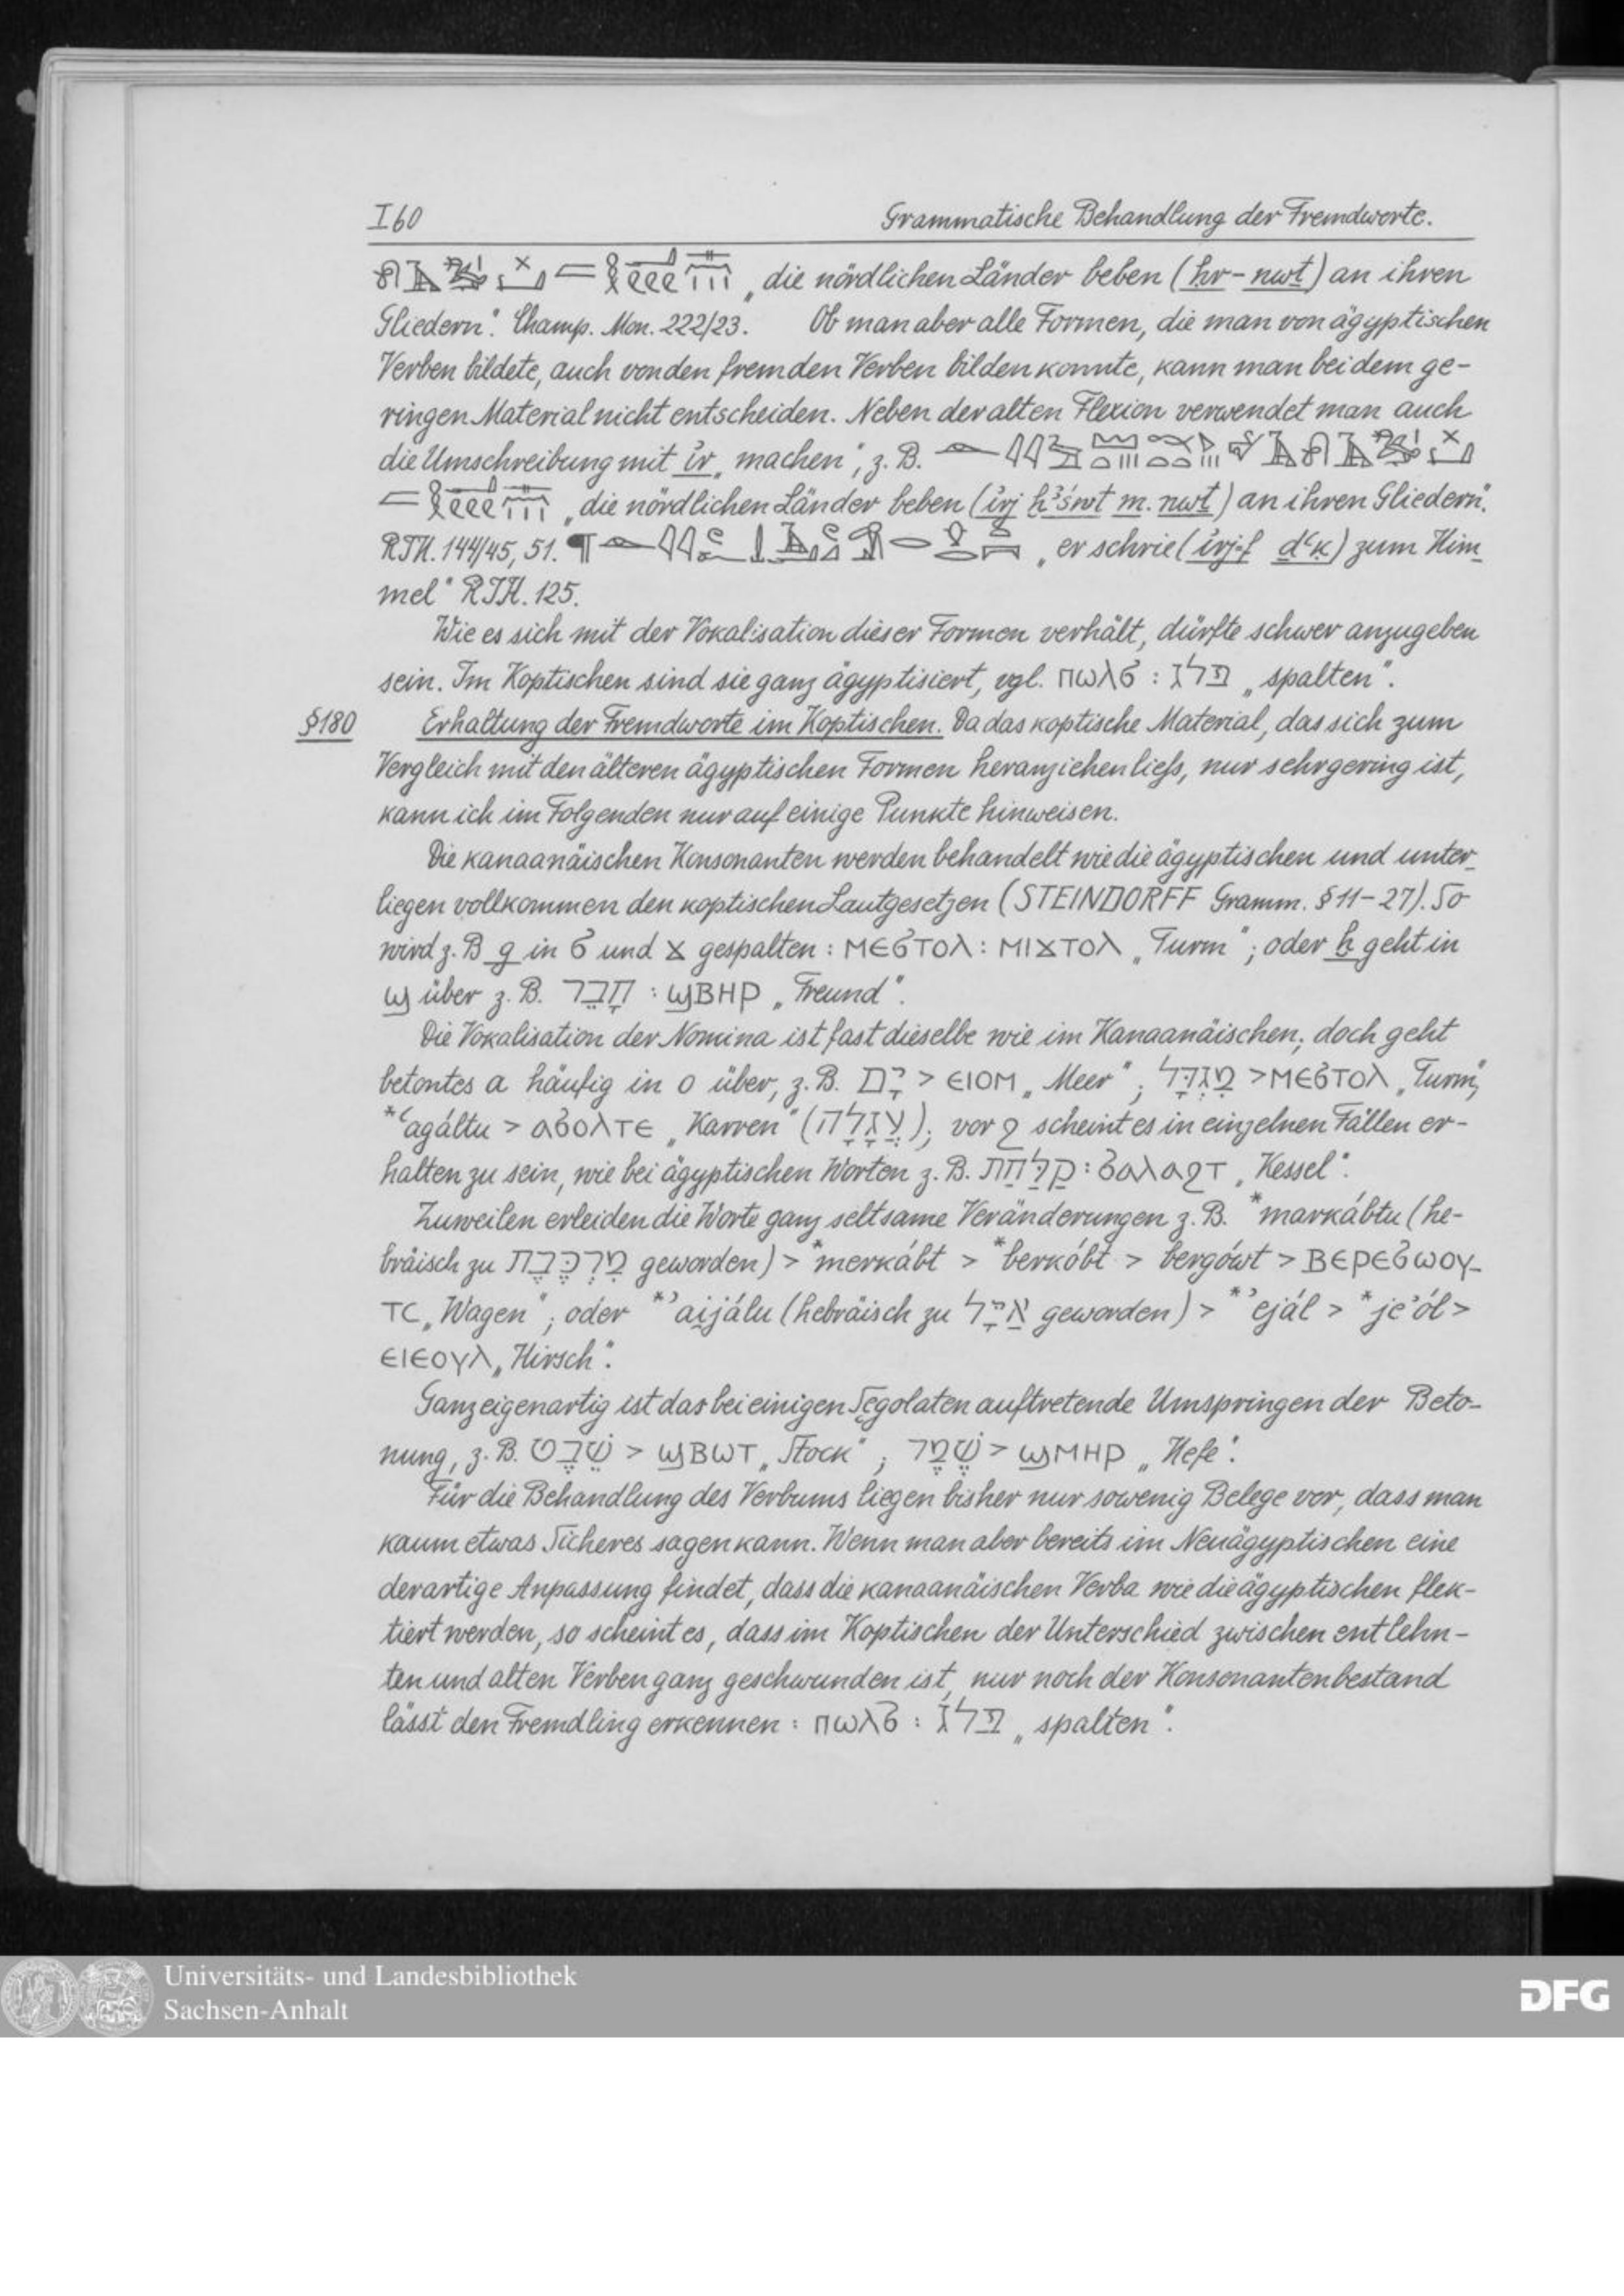 I 60 Grammatische Behandlung der Fremdworte.
„die nördlichen Länder beben (ḥr - nwṯ) an ihren
Gliedern“. Champ. Mon. 222/23. Ob man aber alle Formen, die man von ägyptischen
Verben bildete, auch von den fremden Verben bilden konnte, kann man bei dem ge-
ringen Material nicht entscheiden. Neben der alten Flexion verwendet man auch
die Umschreibung mit ir „machen“, z. B.
„die nördlichen Länder beben (irj m. nwṯ) an ihren Gliedern“.
RJH. 144/45, 51. „er schrie (irj-f ḏʿḳ) zum Him-
mel“ RJH. 125.
Wie es sich mit der Vokalisation dieser Formen verhält, dürfte schwer anzugeben
sein. Im Koptischen sind sie ganz ägyptisiert, vgl. ⲡⲱⲗϭ : פלג „spalten“.
§180 Erhaltung der Fremdworte im Koptischen. Da das koptische Material, das sich zum
Vergleich mit den älteren ägyptischen Formen heranziehen liess, nur sehr gering ist,
kann ich im Folgenden nur auf einige Punkte hinweisen.
Die kanaanäischen Konsonanten werden behandelt wie die ägyptischen und unter-
liegen vollkommen den koptischen Lautgesetzen (STEINDORFF Gramm. § 11-27). So
wird z. B g in ϭ und ϫ gespalten : ⲙⲉϭⲧⲟⲗ : ⲙⲓϫⲧⲟⲗ „Turm“; oder ḫ geht in
ϣ über z. B. חָבֵר : ϣⲃⲏⲣ „Freund“.
Die Vokalisation der Nomina ist fast dieselbe wie im Kanaanäischen; doch geht
betontes a häufig in o über, z. B. יָם > ⲉⲓⲟⲙ „Meer“; מִגְדָּל > ⲙⲉϭⲧⲟⲗ „Turm“,
*ʿagáltu > ⲁϭⲟⲗⲧⲉ „Karren“ (עֲגָלָה); vor ϩ scheint es in einzelnen Fällen er-
halten zu sein, wie bei ägyptischen Worten z. B. קַלַּחַת : ϭⲁⲗⲁϩⲧ „Kessel“.
Zuweilen erleiden die Worte ganz seltsame Veränderungen z. B. *markábtu (he-
bräisch zu מֶרְכֶּבֶת geworden) > *merkábt > *berkóbt > bergówt > ⲃⲉⲣⲉϭⲱⲟⲩ-
ⲧⲥ „Wagen“; oder *ʾaijálu (hebräisch zu אַיָּל geworden) > *ʾejál > *jeʾól >
ⲉⲓⲉⲟⲩⲗ „Hirsch“.
Ganz eigenartig ist das bei einigen Segolaten auftretende Umspringen der Beto-
nung, z. B. שֵׁבֶט > ϣⲃⲱⲧ „Stock“; שֶׁמֶר > ϣⲙⲏⲣ „Hefe“.
Für die Behandlung des Verbums liegen bisher nur sowenig Belege vor, dass man
kaum etwas Sicheres sagen kann. Wenn man aber bereits im Neuägyptischen eine
derartige Anpassung findet, dass die kanaanäischen Verba wie die ägyptischen flek-
tiert werden, so scheint es, dass im Koptischen der Unterschied zwischen entlehn-
ten und alten Verben ganz geschwunden ist, nur noch der Konsonantenbestand
lässt den Fremdling erkennen : ⲡⲱⲗϭ : פלג „spalten“.
Universitäts- und Landesbibliothek
Sachsen-Anhalt
DFG